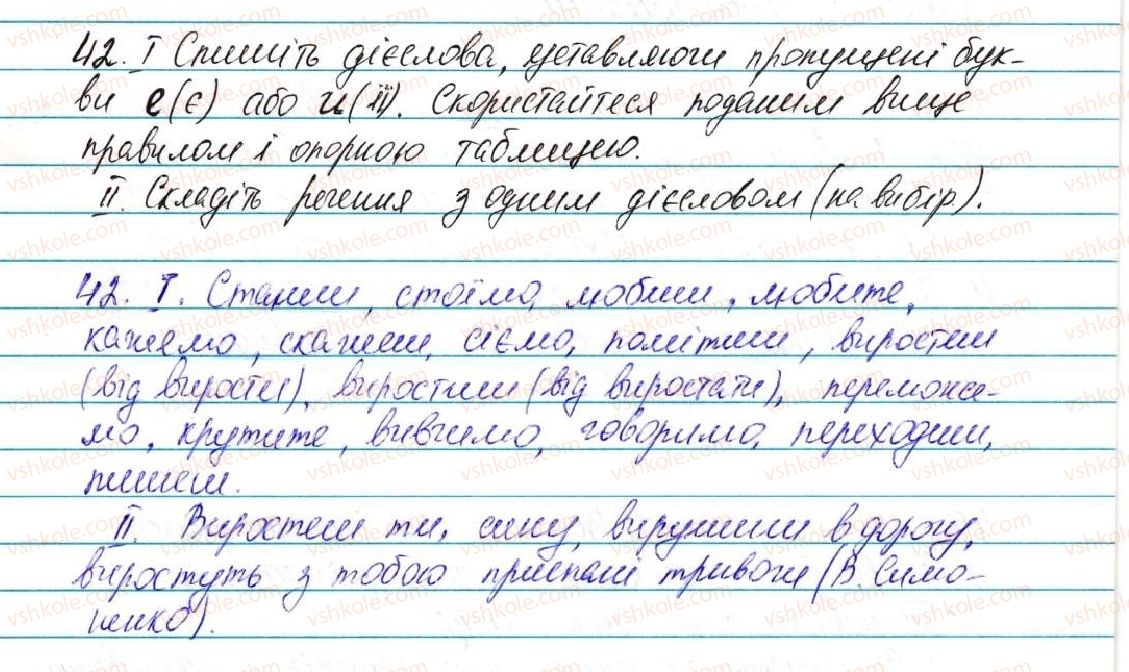 42. I Спишіть дієслова, уставляючи пропущені бук-
ви е(є) або и(ї). Скористайтеся поданим вище
правилом і опорною таблицею.
II. Складіть речення з одним дієсловом (на вибір).
42. I. Станеш, стоїмо, любиш, любите,
кажемо, скажеш, сіємо, помітиш, виростеш
(від вирости), виростиш (від виростати), переможе-
мо, крутите, вивчимо, говоримо, переходиш,
пишеш.
II. Виростеш ти, сину, вирушиш в дорогу,
виростуть з тобою приспані тривоги (В. Симо-
ненко).